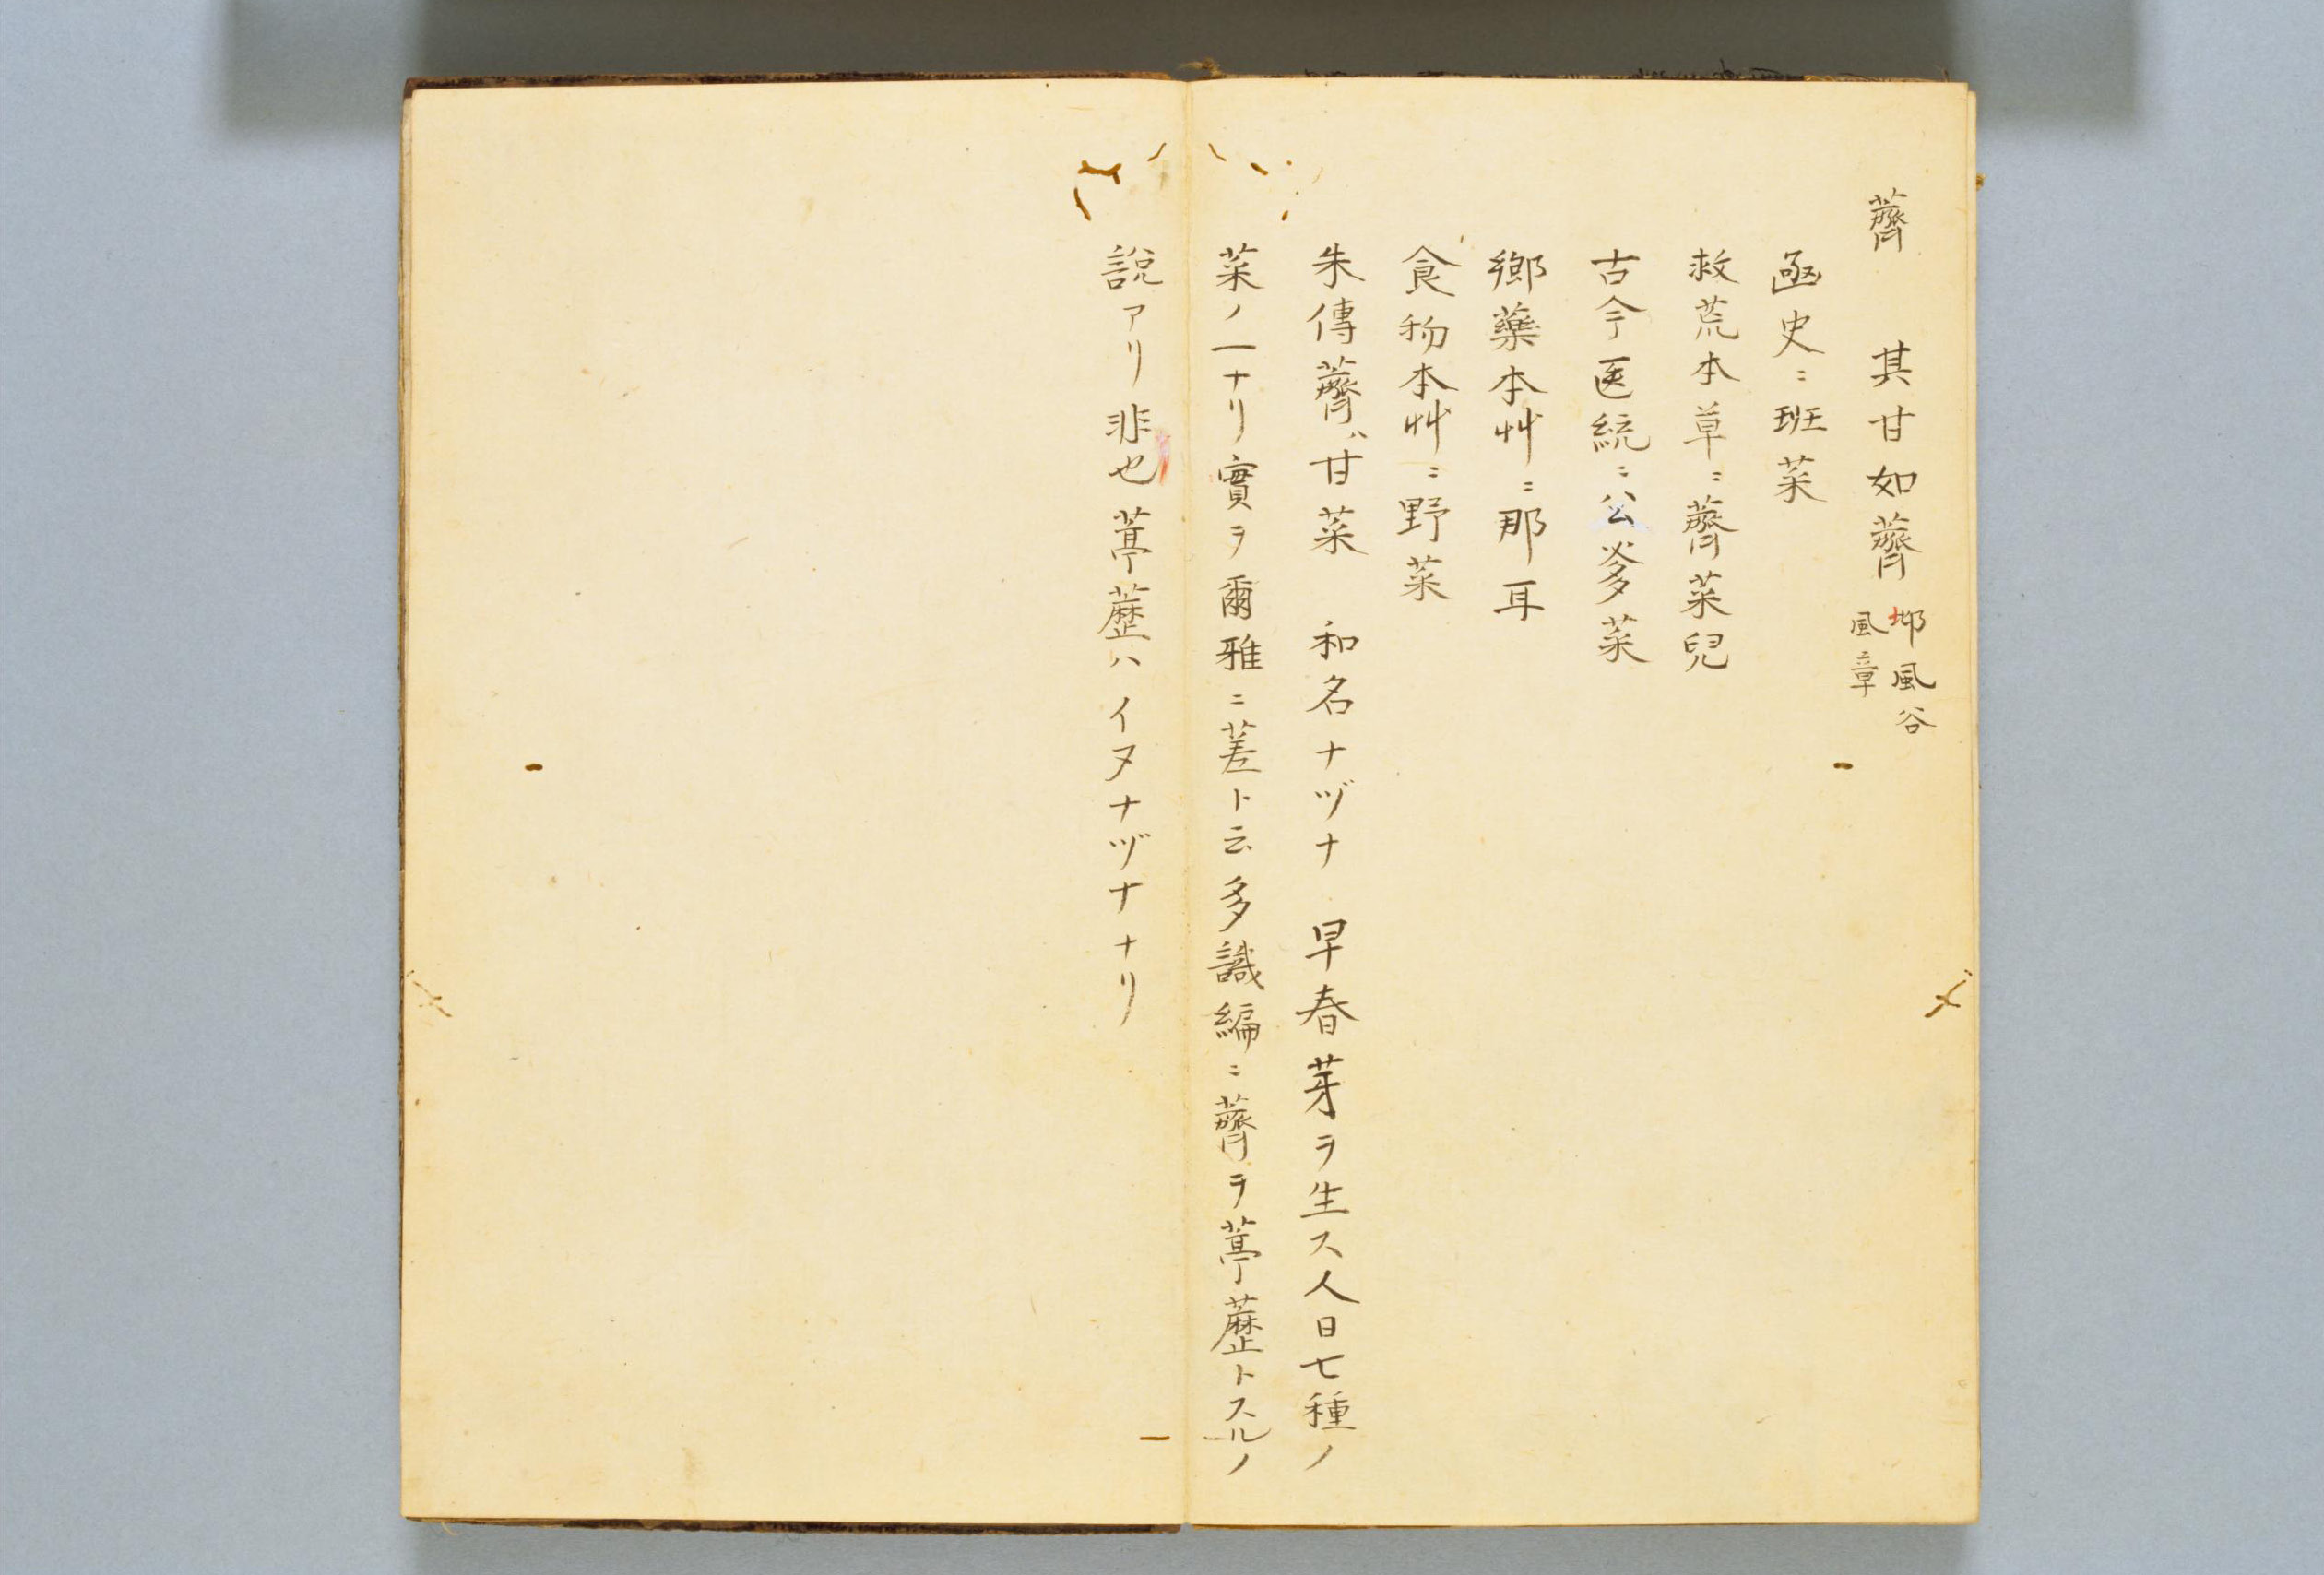 薺　其甘如薺　邶風谷
風章
凾史ニ班菜
救荒本草ニ薺菜兒
古今医統ニ公爹菜
鄉藥本艸ニ那耳
食物本艸ニ野菜
朱傳薺ハ甘菜　和名ナヅナ　早春芽ヲ生ス人日七種ノ
菜ノ一ナリ實ヲ爾雅ニ蒫ト云多識編ニ薺ヲ葶藶トスルノ
說アリ非也葶藶ハイヌナヅナナリ